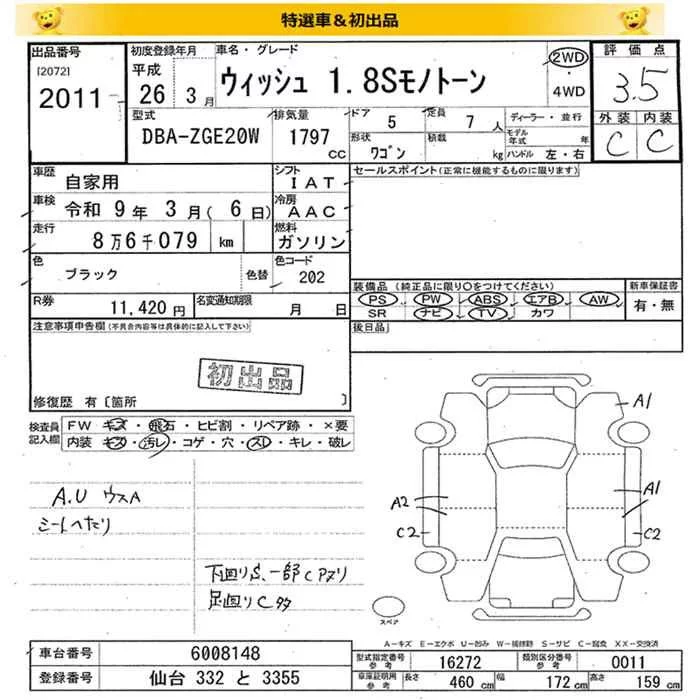 特選車＆初出品
出品番号
[2072]
2011
初度登録年月
平成
26 3月
車名・グレード
ウィッシュ 1.8Sモノトーン
2WD
・
4WD
評価点
3.5
外装 内装
C C
型式
DBA-ZGE20W
排気量
1797
CC
ドア
5
定員
7 人
形状
ワゴン
積載
kg
ディーラー・並行
モデル年式 年
ハンドル 左・右
車歴
自家用
シフト
IAT
車検
令和 9年 3月(6日)
冷房
AAC
走行
8万6千079 km
燃料
ガソリン
色
ブラック
色替
色コード
202
R券
11,420円
名変通知期限
月 日
セールスポイント(正常に機能するものに限ります)
装備品(純正品に限り○をつけてください)
PS PW ABS エアB AW
SR ナビ TV カワ
新車保証書
有・無
後日品
注意事項申告欄(不具合内容等は具体的に記入して下さい)
初出品
修復歴 有〔箇所 〕
検査員記入欄
FW キズ・飛石・ヒビ割・リペア跡・×要
内装 キズ・汚レ・コゲ・穴・スレ・キレ・破レ
A.U ウスA
シートへたり
下回りS、一部Cアヌリ
足廻りC多
A1
A2
A1
C2
C2
スペア
A-キズ E-エクボ U-凹み W-補修跡 S-サビ C-腐食 XX-交換済
車台番号
6008148
登録番号
仙台 332 と 3355
型式指定番号
参考
16272
類別区分番号
参考
0011
車庫証明用
参考
長さ
460 cm
幅
172 cm
高さ
159 cm